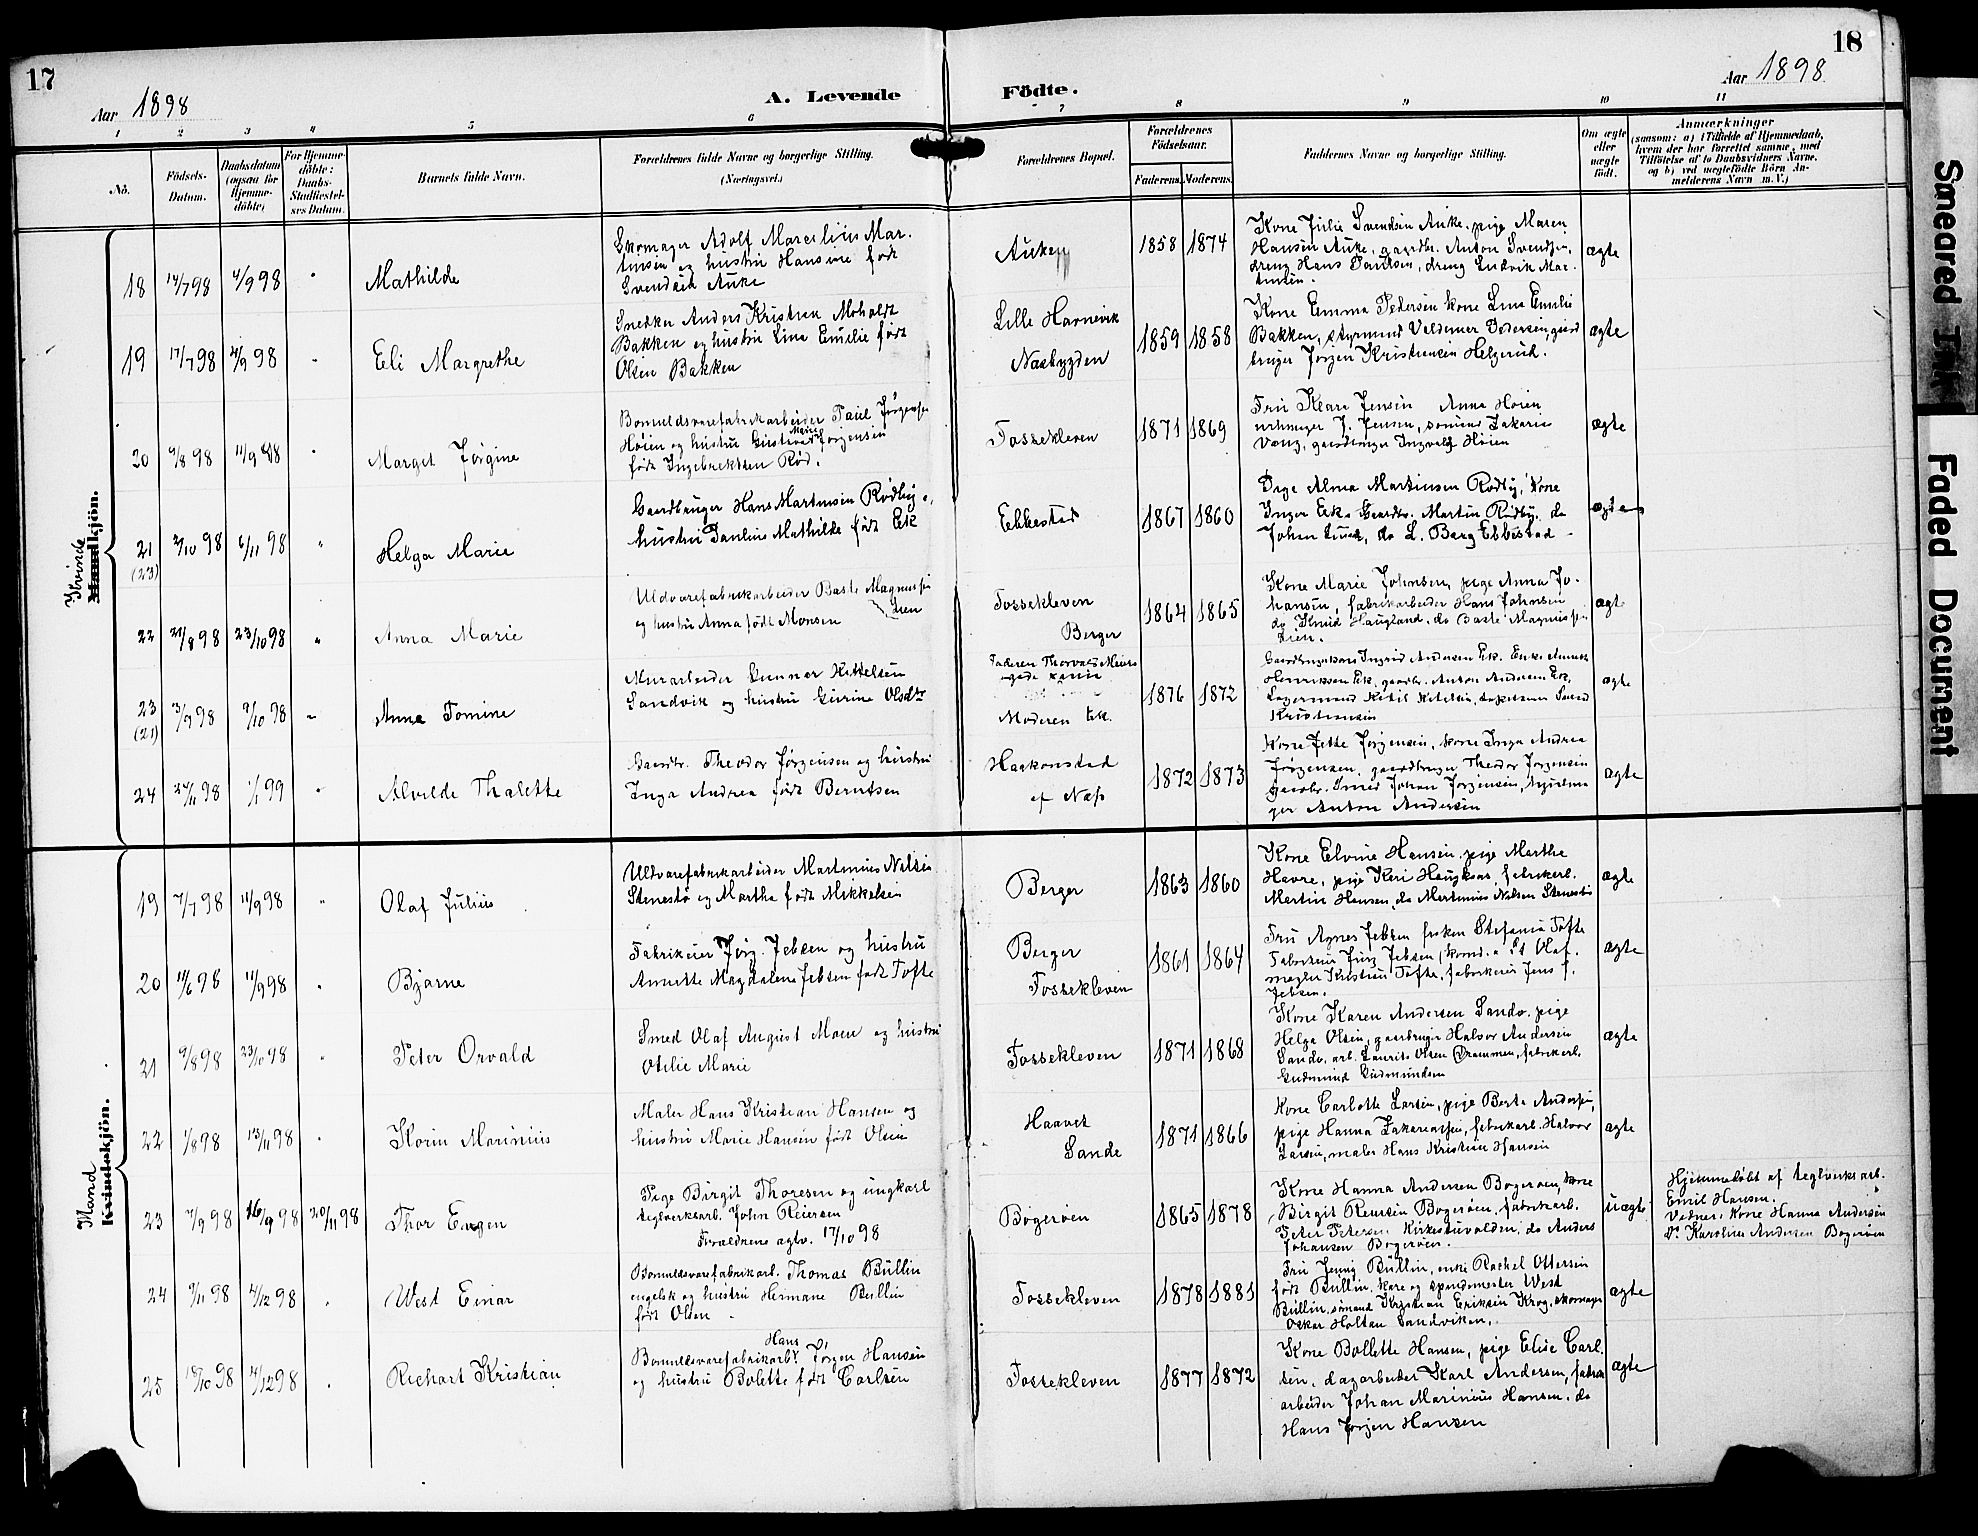 17
Aar 1898
A. Levende
Födte.
Aar 1898
18
1 2 3 4 5 6 7 8 9 10 11
No.
Födsels-
Datum.
Daabsdatum
(ogsaa for
Hjemme-
döbte)
For Hjemme-
döbte:
Daabs-
Stadfæstel-
ses Datum.
Barnets fulde Navn.
Forældrenes fulde Navne og borgerlige Stilling.
(Næringsvei.)
Forældrenes Bopæl.
Forældrenes
Födselsaar.
Faderens. Moderens.
Faddernes Navne og borgerlige Stilling.
Om ægte
eller
uægte
födt.
Anmærkninger
(saasom: a) i Tilfælde af Hjemmedaab,
hvem der har forrettet samme, med
Tilföielse af to Daabsvidners Navne,
og b) ved uægtefödte Börn An-
melderens Navn m. V.)
Kvinde
Mandkjön.
18 14/7 98 4/9 98 " Mathilde
Skomager Adolf Marcelius Mar-
tinsen og hustru Hansine født
Svendsen Auke
Auken
1858 1874
Kone Julie Svendsen Auke, pige Maren
Hansen Auke, gaardbr. Anton Svendsen,
dreng Hans Paulsen, dreng Ludvik Mar-
tinsen.
ægte
19 17/7 98 4/9 98 " Eli Margrethe
Snedker Anders Kristian Moholdt
Bakken og hustru Lina Emilie født
Olsen Bakken
Lille Havnevik
Nesbygden
1859 1858
Kone Emma Pedersen kone Lina Emilie
Bakken, styrmand Valdemar Pedersen, gaard
bruger Jørgen Kristiansen Helgerud.
ægte
20 9/8 98 11/9 98 " Marget Jørgine
Bomuldsvarefabrikarbeider Paul Jørgensen
Høien og hustru Gustava Marie Jørgensen
født Ingebrektsen Rød.
Fossekleven
1871 1869
Fru Klara Jensen Anna Høien
urmager J. Jensen, sømand Zakarie
Vang, gaardbruger Ingvald Høien
ægte
21
(23)
2/10 98 6/11 98 " Helga Marie
Gaardbruger Hans Martinsen Rødby o.
hustru Pauline Mathilde født Ek
Ebbestad
1867 1860
Pige Alma Martinsen Rødby, kone
Inger Ek. Gaardbr. Martin Rødby, do
Johan Lund, do L. Berg Ebbestad
ægte
22 21/8 98 23/10 98 " Anna Marie
Uldvarefabrikarbeider Baste Magnussen
Lien
og hustru Anna født Monsen
Fossekleven
Berger
1864 1865
Kone Marie Johnsen, pige Anna Jo-
hansen, fabrikarbeider Hans Johnsen
do Knud Haugland, do Baste Magnussen
Lien.
ægte
23
(21)
3/9 98 9/10 98 " Anna Tomine
Murarbeider Gunnar Kittelsen
Sandvik og hustru Gurine Olsdtr
Faderen Thorvald Meiers
gade
Moderen Ek.
1876 1872
Gaardbrugerkone Ingrid Andersen Ek. Enke Annette
Henriksen Ek, gaardbr. Anton Andersen Ek,
Lagermand Ketil Ketelsen,
Kristiansen
ægte
24 27/11 98 1/1 99 " Alvilde Thalette
Gaardbr. Theodor Jørgensen og hustru
Inga Andrea født Berntsen
Haakonstad
af Næss
1872 1873
Kone Jette Jørgensen, kone Inga Andrea
Jørgensen, gaardbruger Theodor Jørgensen
gaardbr. Smed Johan Jørgensen,
ger Anton Andersen
ægte
Mand
Kvindekjön.
19 7/7 98 11/9 98 " Olaf Julius
Uldvarefabrikarbeider Martinius Nilsen
Stenestø og Marthe født Mikkelsen
Berger
1863 1860
Kone Elvine Hansen, pige Marthe
Havre, pige Kari Haugsnes, fabrikarb.
Martin Hansen, do Martinius Nilsen Stenestø
ægte
20 11/6 98 11/9 98 " Bjarne
Fabrikeier Jürg. Jebsen og hustru
Annette Magdalene Jebsen født Tofte
Berger
Fossekleven
1861 1864
Fru Agnes Jebsen frøken Stefania Tofte
Fabrikeier Jürg Jebsen, (komd. a St Olaf.
megler Kristian Tofte, fabrikeier Jens J.
Jebsen.
ægte
21 9/8 98 23/10 98 " Peter Orvald
Smed Olaf August Moen og hustru
Otilie Marie
Fossekleven
1871 1868
Kone Karen Andersen Sando, pige
Helga Olsen, gaardbruger Halvor Andersen
Sando, arb. Laurits Olsen Drammen, fabrikarb.
Gudmund Gudmundsen
ægte
22 1/8 98 13/11 98 " Korin Marinius
Maler Hans Kristian Hansen og
hustru Marie Hansen født Olsen
Haavet
Sande
1871 1866
Kone Carlotte Larsen, pige Berta Andersen,
pige Hanna Zakariassen, fabrikarb. Halvor
Larsen, maler Hans Kristian Hansen
ægte
23 7/9 98 16/9 98 20/11 98 Thor Eugen
Pige Birgit Thoresen og ungkarl
teglverksarb. John Reiersen
Forældrene agtv. 17/10 98
Bogerøen
1865 1878
Kone Hanna Andersen Bogerøen, kone
Birgit Reiersen Bogerøen, fabrikarb.
Peter Petersen Kirkestuvolden, do Anders
Johansen Bogerøen.
uægte
Hjemmedøbt af teglverksarb.
Emil Hansen.
Vidner: Kone Hanna Andersen
Do Karoline Andersen Bogerøen
24 9/11 98 4/12 98 " West Einar
Bomuldsvarefabrikarb. Thomas Bullin
engelsk og hustru Hermane Bullin
født Olsen
Fossekleven
1878 1881
Fru Jenny Bullin, enke Rachel Ottersen
født Bullin, kare og spindemester West
Bullin, sømand Kristian Eriksen Krog, skomager
Oskar Holtan Sandviken.
ægte
25 18/10 98 4/12 98 " Richart Kristian
Hans
Bomuldsvarefabrikarb. Jørgen Hansen
og hustru Bolette født Carlsen
Fossekleven
1877 1872
Kone Bollette Hansen, pige Elise Carl-
sen, dagarbeider Karl Andersen, fabrik
arbeider Johan Marinius Hansen, do
Hans Jørgen Hansen
ægte
Smeared Ink
Faded Document